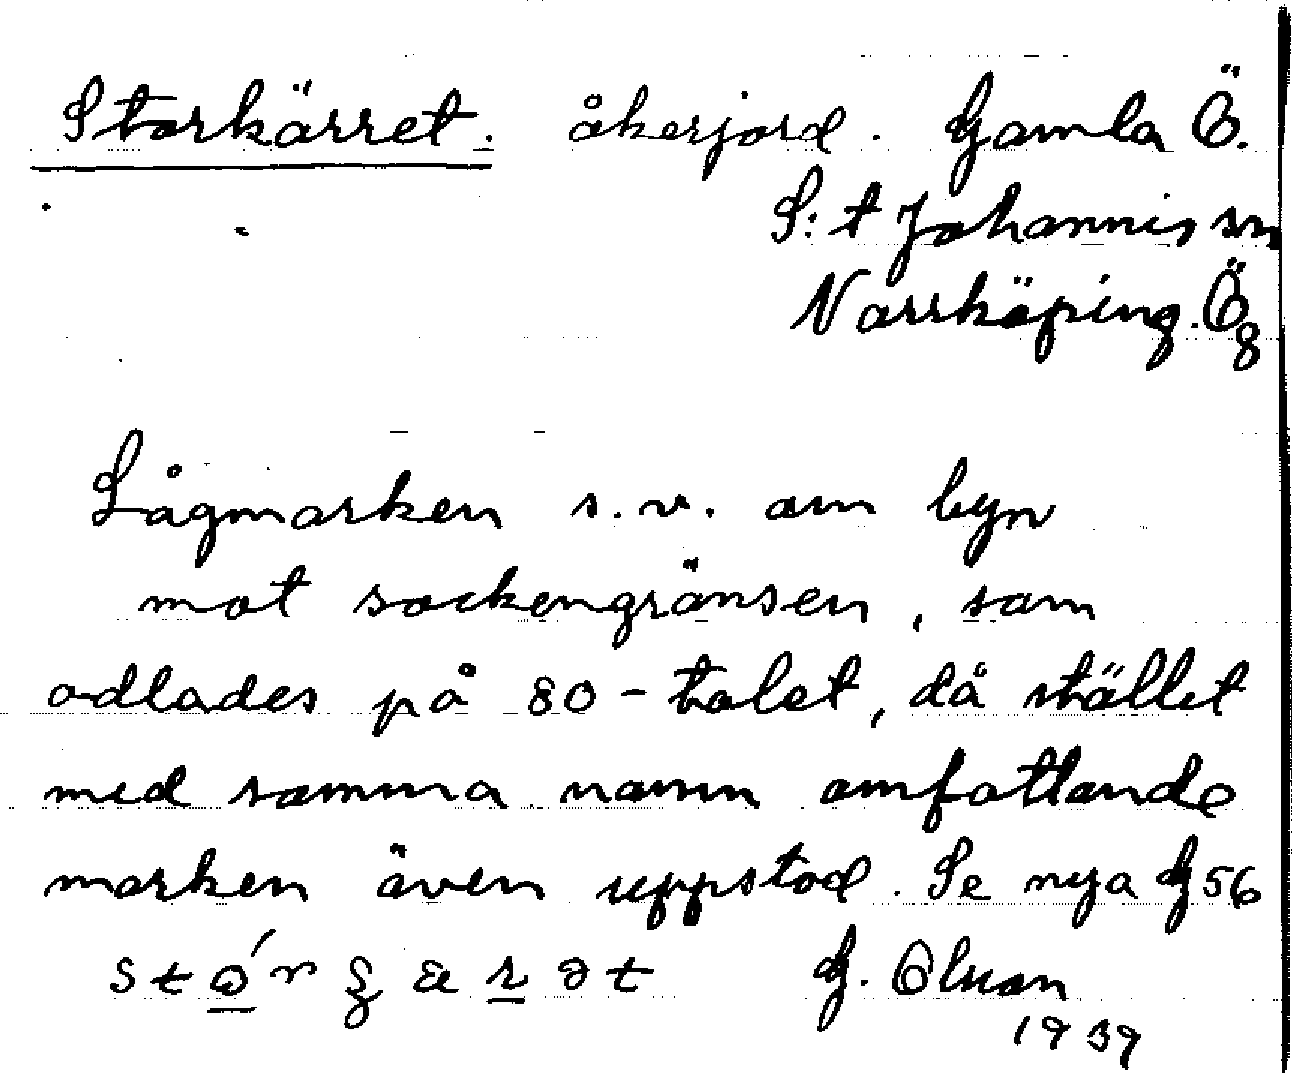 Storkärret. åkerjord. Gamla Ö.
S:t Johannis sn
Norrköping. Ög
Lågmarken s.v. om byn
mot sockengränsen, som
odlades på 80-talet, då stället
med samma namn omfattande
marken även uppstod. Se nya G 56
G. Olsson
1939